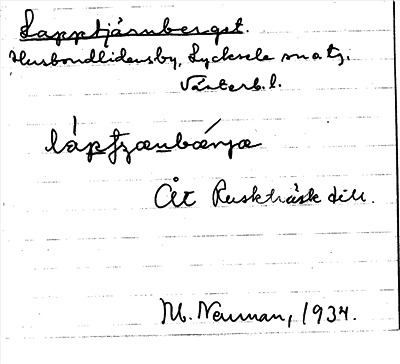 Lapptjärnberget.
Husbondlidens by, Lycksele snmtg.
Västerb. l.
låpt̨zænbǽrja
Åt Ruskträsk till.
M. Neuman, 1934.